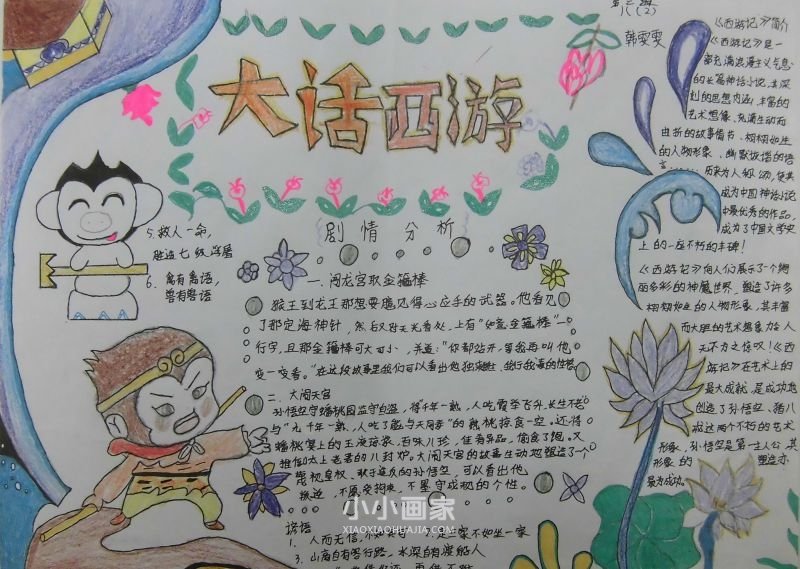 八(2)
韩雯雯
大话西游
剧情分析
一、闯龙宫取金箍棒
猴王到龙王那想要随见得心应手的武器。他看见
了那定海神针，然后又对天光看处，上有“如意金箍棒”一
行字，且那金箍棒可大可小，并道：“你都站开，等我再叫他
变一变看。”
在这段故事里我们可以看出他
二、大闹天宫
孙悟空守蟠桃园监守自盗，
人吃霞举飞升，长生不老
人吃了能与天同寿”的熟桃掠食一空。还将
蟠桃宴上的玉液琼浆，百味八珍，佳肴异品，偷食了饱。又
推倒太上老君的八卦炉。大闹天宫的故事生动地塑造了个
蔑视皇权、敢于造反的孙悟空，可以看出他
叛逆，不愿受拘束，不墨守成规的个性。
谚语
1、人而无信，
坐一家
3、山高自有客行路，水深自有渡船人
5、救人一命，
胜造七级浮屠
6、禽有禽语，
兽有兽语
《西游记》简介
《西游记》是一
部充满浪漫主义气息
的长篇神话小说，其深
刻的思想内涵，丰富的
艺术想像，充满生动而
曲折的故事情节、栩栩如生
的人物形象、幽默诙谐的语
言……历来为人称颂，使其
成为中国神话小说
中最优秀的作品，
成为了中国文学史
上的一座不朽的丰碑！
《西游记》向人们展示了一个绚
丽多彩的神魔世界，塑造了许多
栩栩如生的人物形象，其丰富
而大胆的艺术想象力令人
无不为之惊叹！《西
游记》在艺术上的
最大成就，是成功地
创造了孙悟空、猪八
戒这两个不朽的艺术
形象，孙悟空是第一主人公，其
形象的塑造亦
最为成功。
小小画家
XIAOXIAOHUAJIA.COM